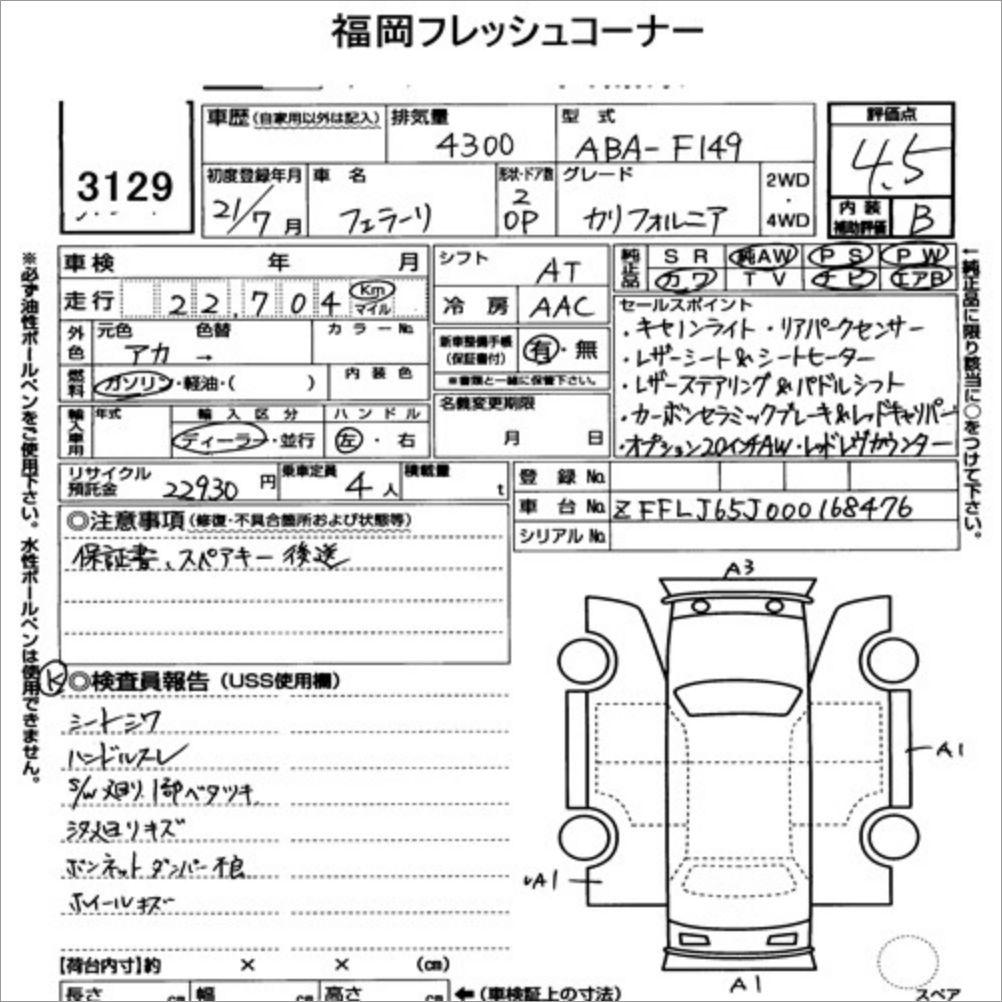 福岡フレッシュコーナー
3129
車歴 (自家用以外は記入)
排気量
4300
型式
ABA-F149
評価点
4.5
初度登録年月
21/7月
車名
フェラーリ
形状・ドア数
2
OP
グレード
カリフォルニア
2WD
・
4WD
内装
補助評価
B
※必ず油性ボールペンをご使用下さい。水性ボールペンは使用できません。
車検 年 月
走行 22,704 Km
マイル
外色
元色 色替
アカ →
カラーNo.
燃料
ガソリン・軽油・( )
内装色
輸入車用
年式
輸入区分
ディーラー・並行
ハンドル
左・右
シフト
AT
冷房
AAC
新車整備手帳
(保証書付)
有・無
※書類と一緒に保管下さい。
名義変更期限
月 日
純正品
SR 純AW PS PW
カワ TV ナビ エアB
セールスポイント
・キセノンライト・リアパークセンサー
・レザーシート&シートヒーター
・レザーステアリング&パドルシフト
・カーボンセラミックブレーキ&レッドキャリパー
・オプション20インチAW・レッドレヴカウンター
←純正品に限り該当に○をつけて下さい。
リサイクル
預託金
22930円
乗車定員
4人
積載量
t
登録No.
車台No.
ZFFLJ65J000168476
シリアルNo.
◎注意事項 (修復・不具合箇所および状態等)
保証書、スペアキー後送
K
◎検査員報告 (USS使用欄)
シートシワ
ハンドルスレ
S/W廻り1部ベタツキ
シタ廻りキズ
ボンネットダンパー不良
ホイールキズ
A3
A1
A1
A1
スペア
【荷台内寸】約 × × (cm)
長さ cm 幅 cm 高さ cm
←(車検証上の寸法)